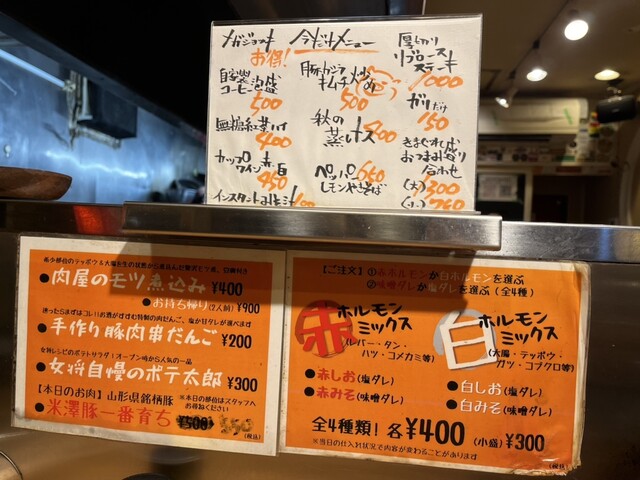 メガジョッキ
お得!
自家製
コーヒー泡盛
500
無糖紅茶ハイ
400
カップワイン 赤 白
450
インスタントみそ汁 100
今だけメニュー
豚カシラ
キムチ炒め
500
秋の
蒸しナス
400
ペロペロ 650
レモンやきそば
厚切り
リブロース
ステーキ
1000
ガリだけ
150
きまぐれ盛
おつまみ盛り
合わせ
(大)1300
(小)750
希少部位のテッポウ&大腸を生の状態から煮込んだ贅沢モツ煮、豆腐付き
●肉屋のモツ煮込み ¥400
●お持ち帰り(2人前) ¥900
迷ったらまずはコレ!!お店がすすむ特製の肉だんご、塩か甘ダレが選べます
●手作り豚肉串だんご ¥200
女将レシピのポテトサラダ!オープン時から人気の一品
●女将自慢のポテ太郎 ¥300
【本日のお肉】山形県銘柄豚 ※本日の部位はスタッフへお尋ねください
●米澤豚一番育ち ¥500 350
(税抜)
【ご注文】①赤ホルモンか白ホルモンを選ぶ
②味噌ダレか塩ダレを選ぶ(全4種)
赤ホルモンミックス
(レバー・タン・
ハツ・コメカミ等)
●赤しお(塩ダレ)
●赤みそ(味噌ダレ)
白ホルモンミックス
(大腸・テッポウ・
ガツ・コブクロ等)
●白しお(塩ダレ)
●白みそ(味噌ダレ)
全4種類!各¥400 (小盛)¥300
※当日の仕入れ状況で内容が変わることがあります
(税抜)